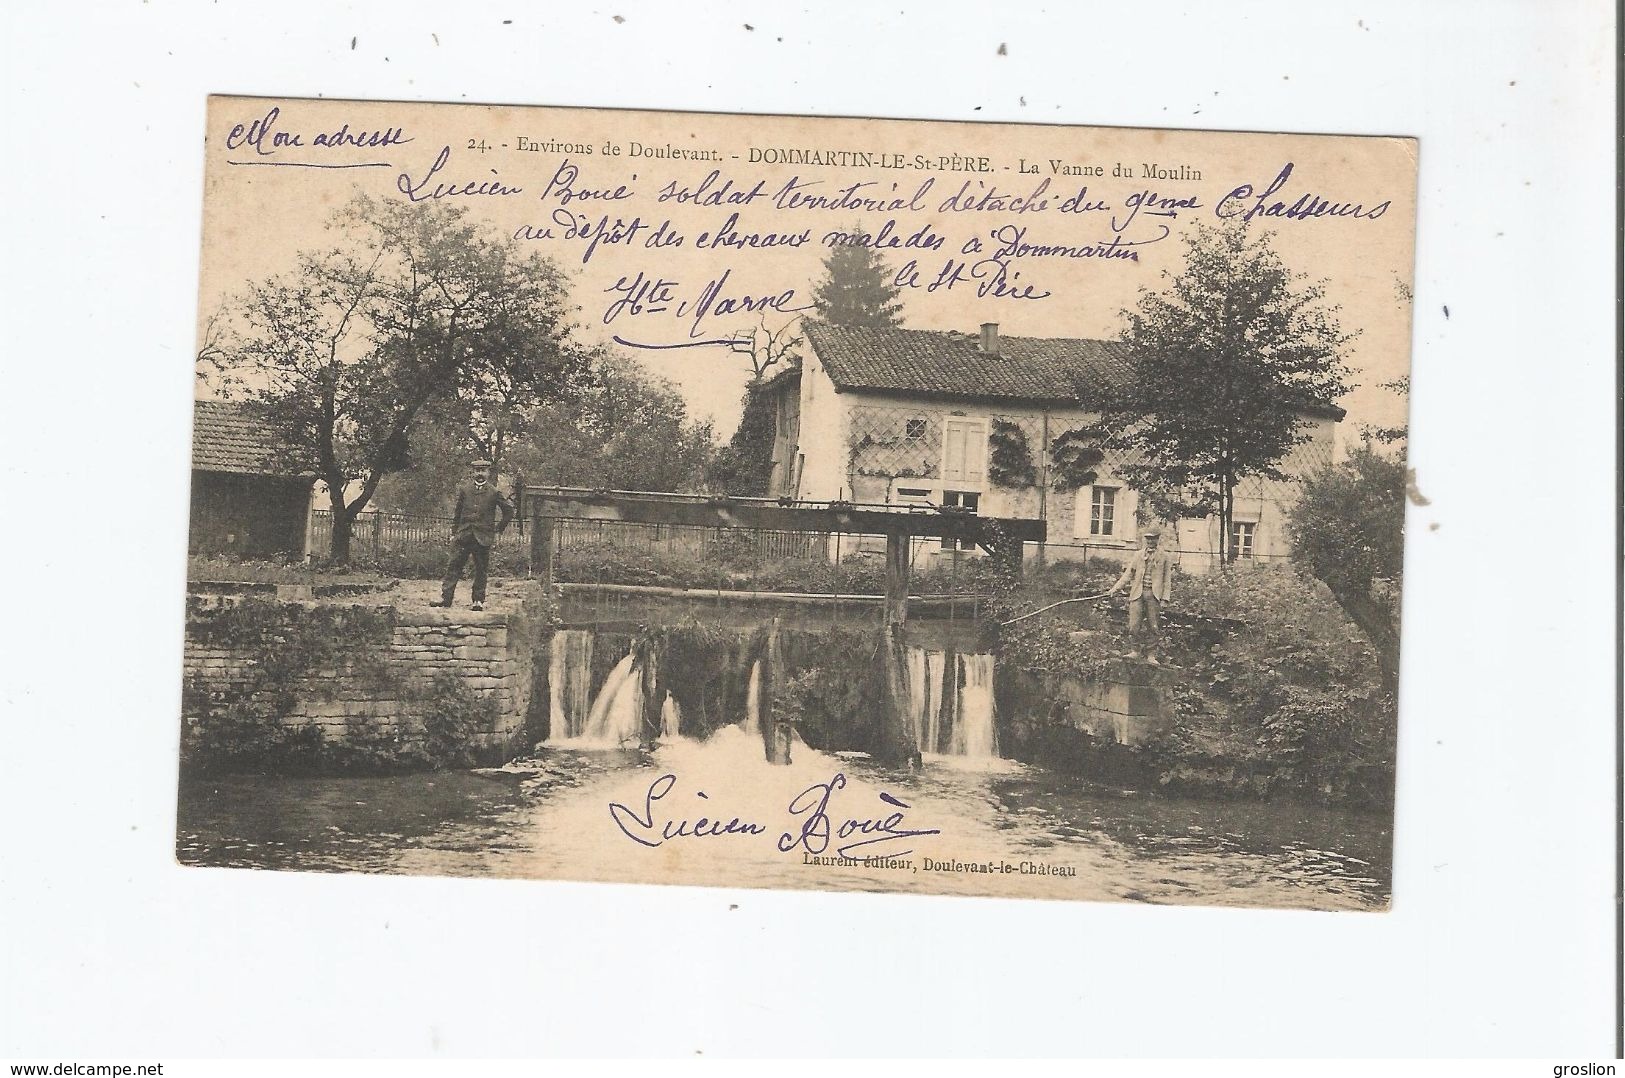 Mon adresse
24. - Environs de Doulevant. - DOMMARTIN-LE-St-PÈRE. - La Vanne du Moulin
Lucien Boué soldat territorial détaché du 9eme Chasseurs
au dépôt des chevaux malades à Dommartin
le St Père
Hte Marne
Lucien Boué
Laurent éditeur, Doulevant-le-Château
www.delcampe.net
groslion